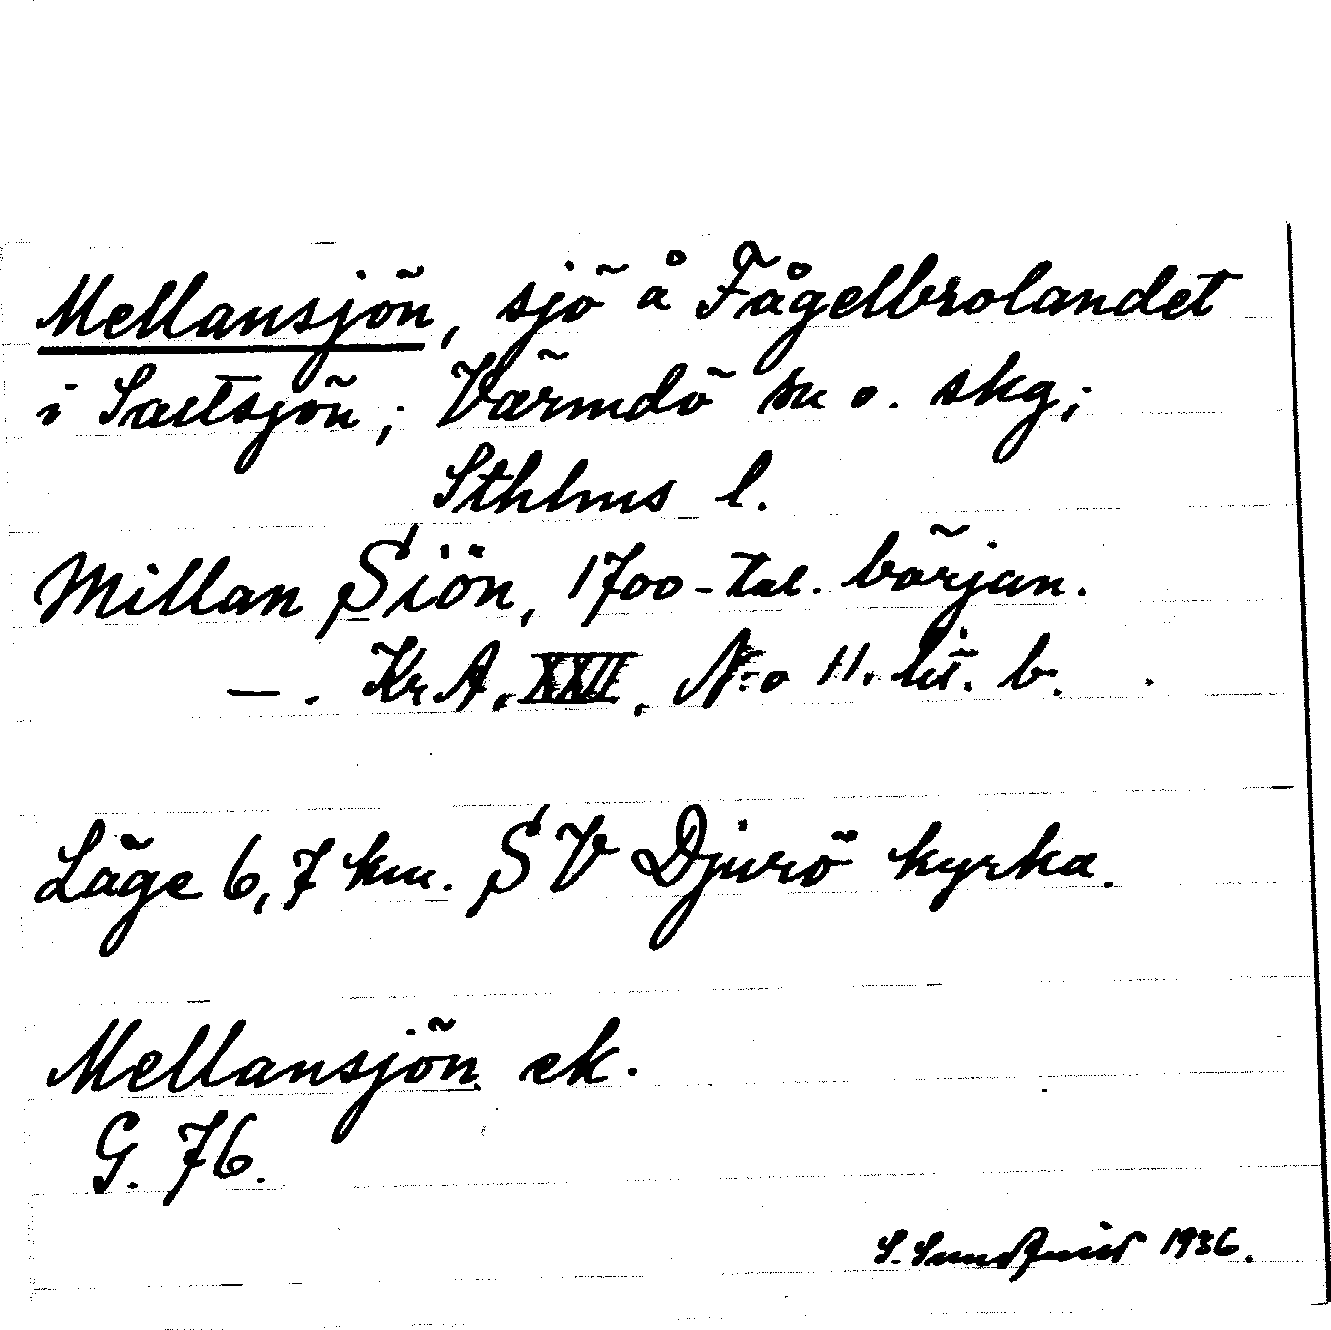 Mellansjön, sjö å Fågelbrolandet
i Saltsjön; Värmdö sn o. skg;
Sthlms l.
Millan Siön, 1700-tal. början.
—. KrA. XXVI. N:o 11. lit. b.
Läge 6,7 km. SV Djurö kyrka.
Mellansjön ek.
G. 76.
S. 1936.